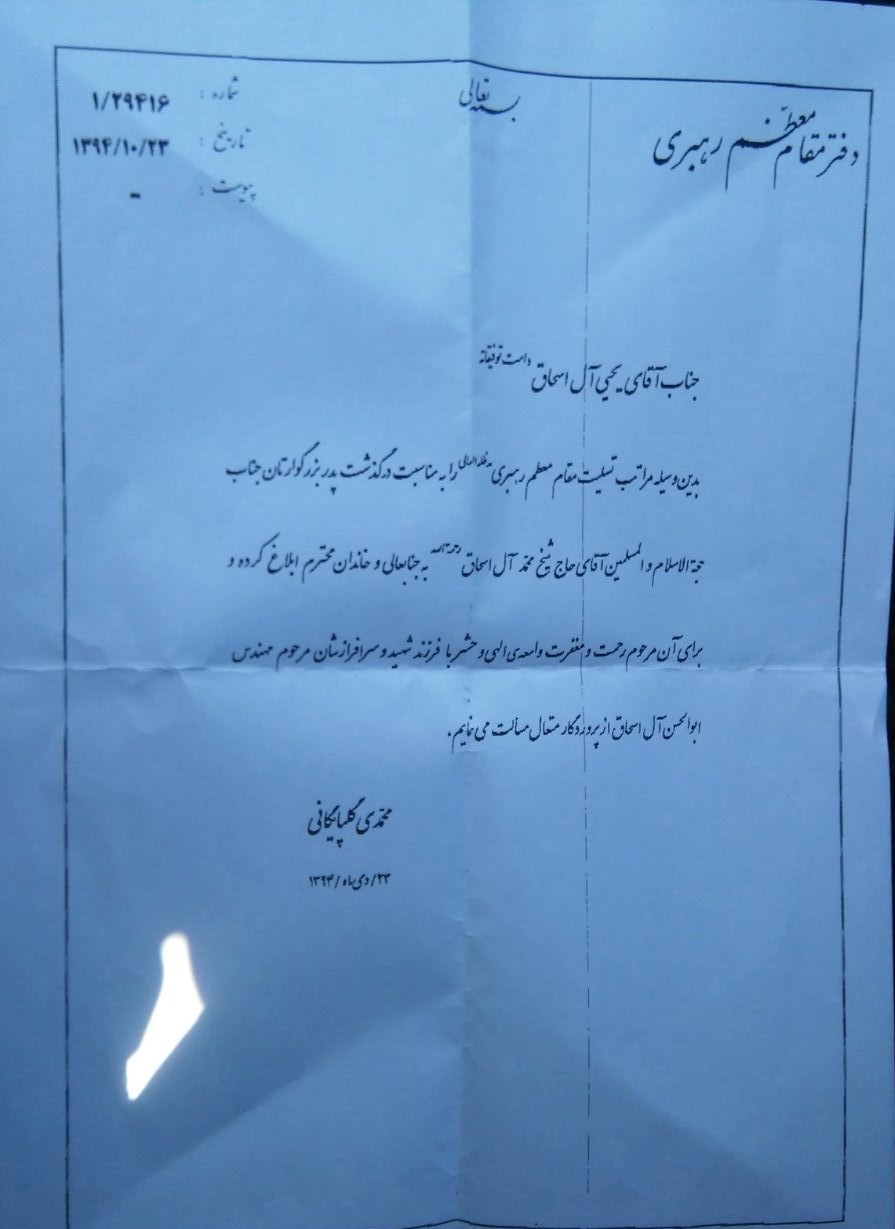 بسمه تعالی
دفتر مقام معظم رهبری
شماره : ۱/۲۹۴۱۶
تاریخ : ۱۳۹۴/۱۰/۲۳
پیوست : -
جناب آقای یحیی آل اسحاق دامت توفیقاته
بدین وسیله مراتب تسلیت مقام معظم رهبری مدظله العالی را به مناسبت درگذشت پدر بزرگوارتان جناب
حجة الاسلام و المسلمین آقای حاج شیخ محمد آل اسحاق رحمة الله به جنابعالی و خاندان محترم ابلاغ کرده و
برای آن مرحوم رحمت و مغفرت واسعه‌ی الهی و حشر با فرزند شهید و سرافرازشان مرحوم مهندس
ابوالحسن آل اسحاق از پروردگار متعال مسألت می نمایم.
محمّدی گلپایگانی
۲۳/دی ماه/۱۳۹۴